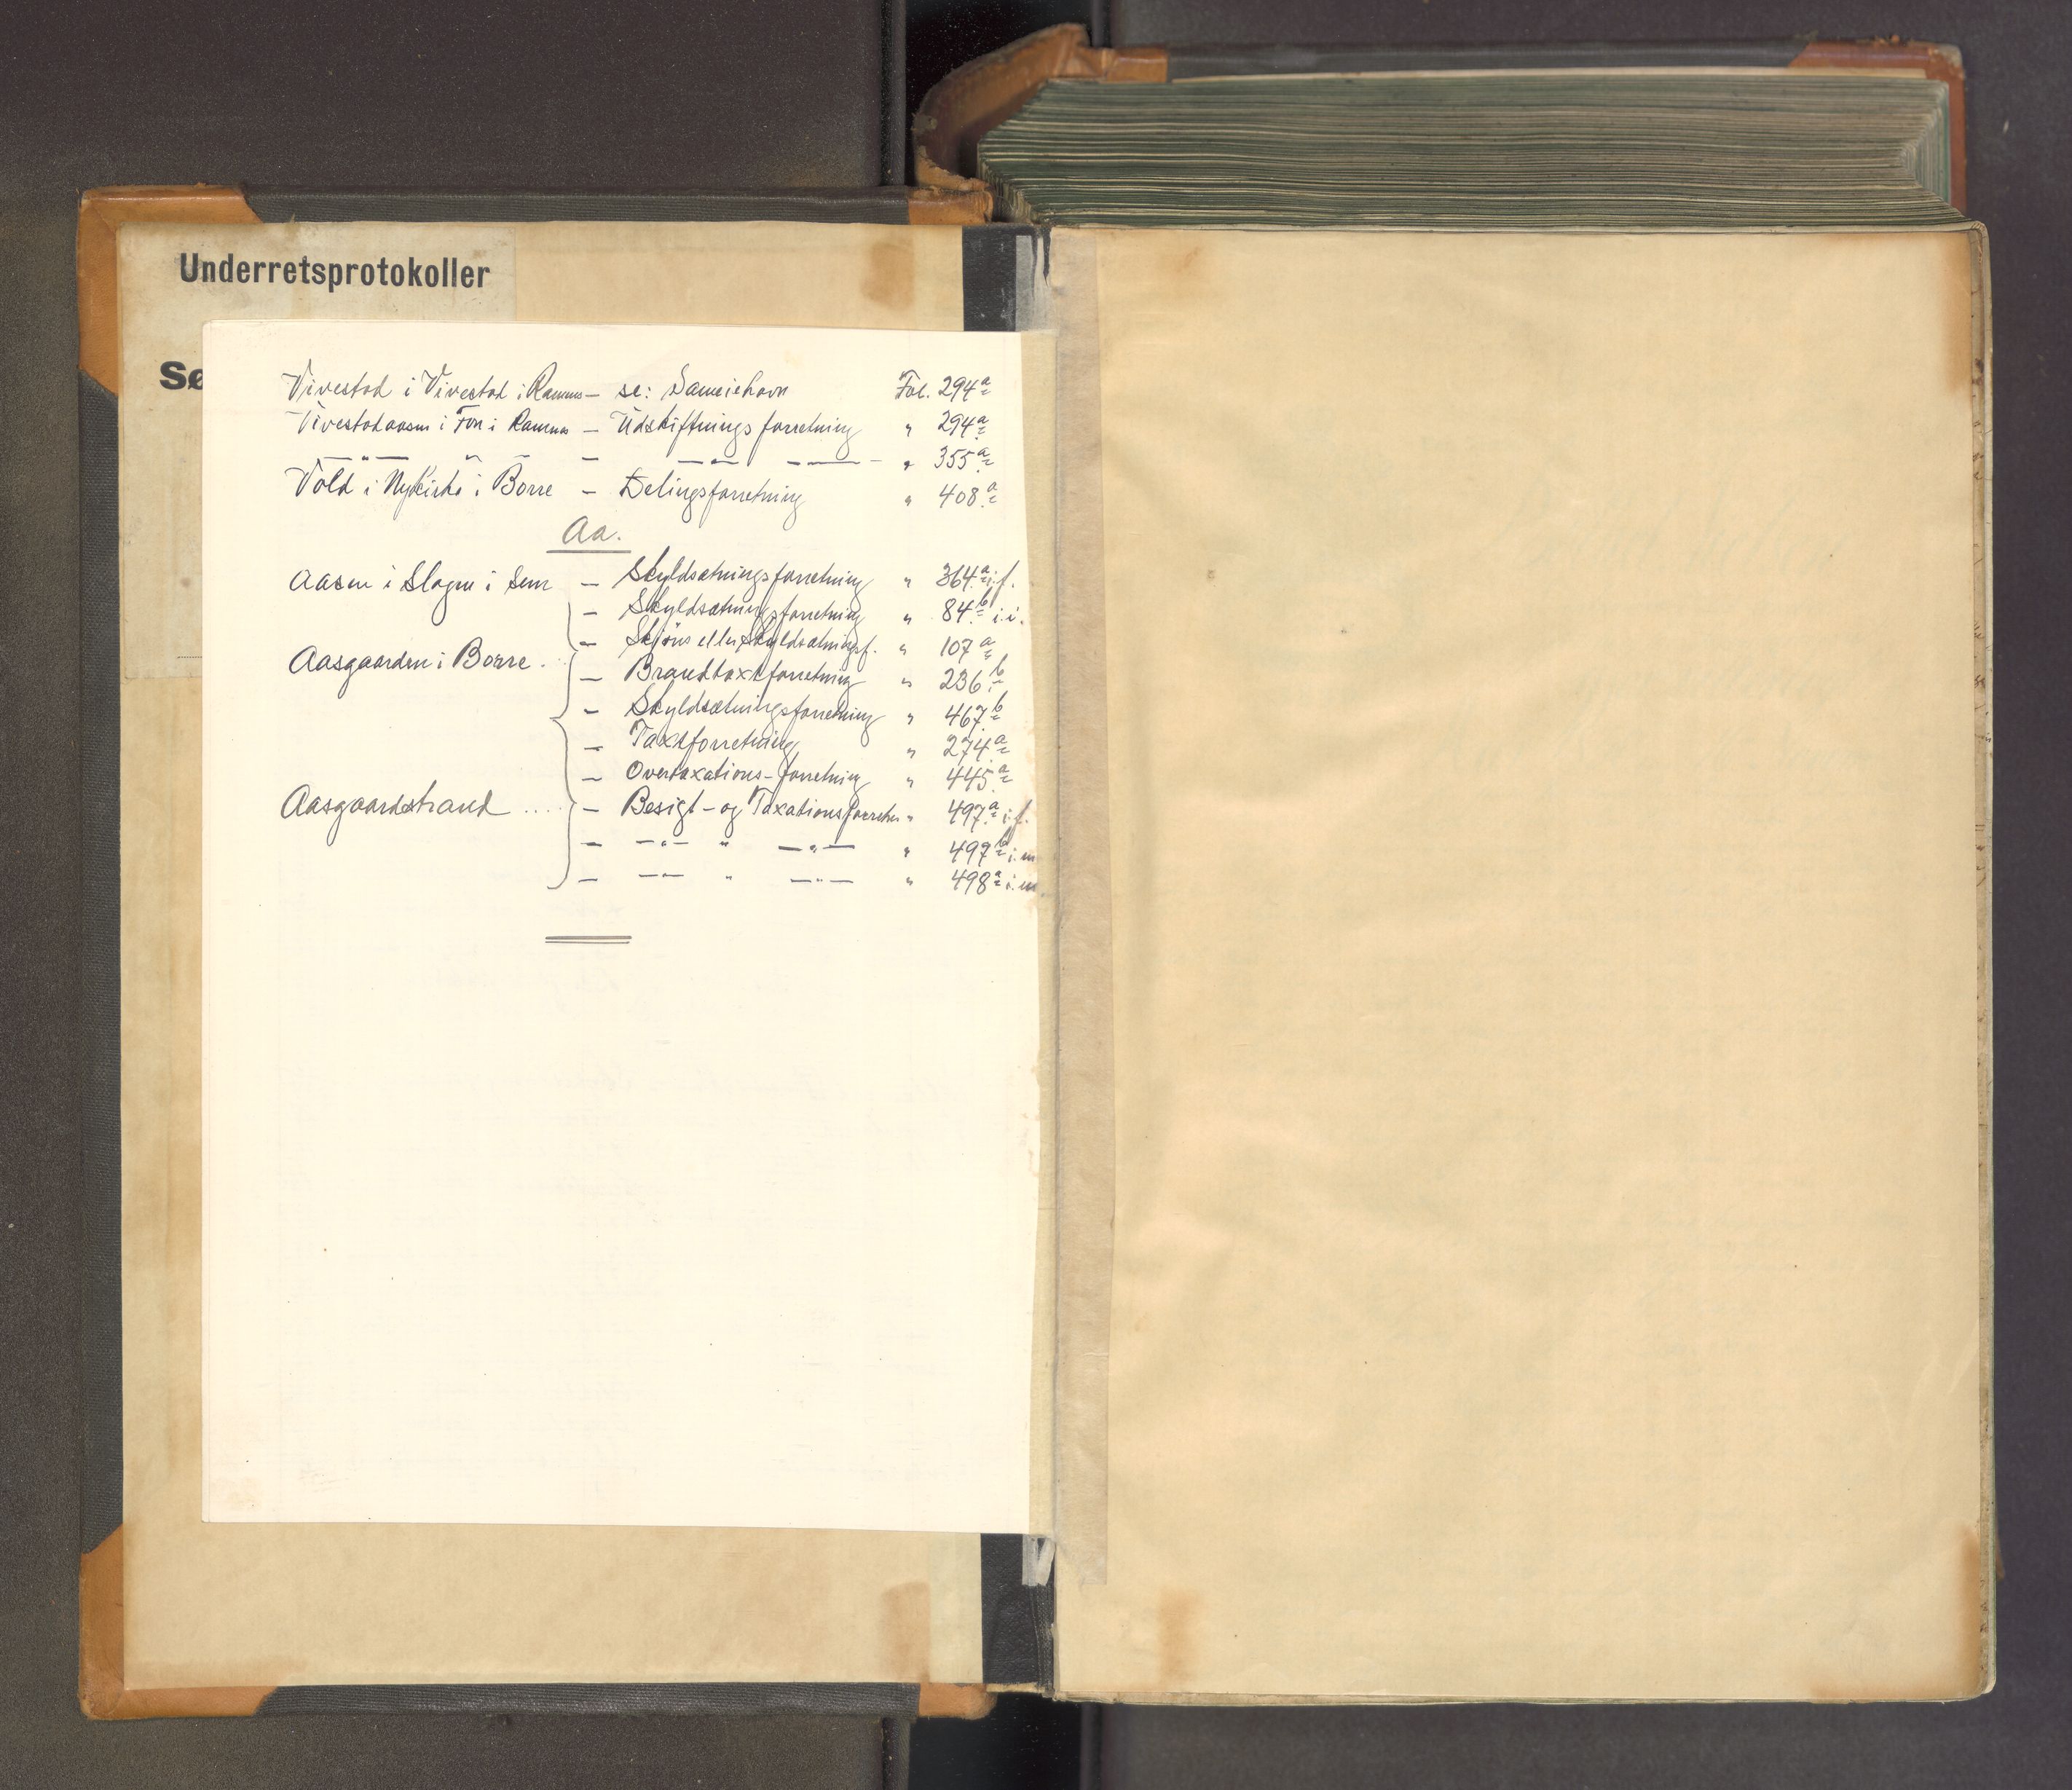 Underretsprotokoller
Sø
Vivestad i Vivestad i Ramnes — se: Sameiehavn Fol. 294a
Vivestadaasen i Fon i Ramnes — Udskiftningsforretning " 294a
—"— " " — —"— —— " 355a
Vold i Nykirke i Borre — Delingsforretning " 408a
Aa.
Aasen i Slagen i Sem — Skyldsætningsforretning " 364a i.f.
— Skyldsætningsforretning " 84b i.i.
— Skjöns eller Skyldsætningsf. " 107a
Aasgaarden i Borre . .
— Brandtaxtforretning " 236b
— Skyldsætningsforretning " 467b
— Taxtforretning " 274a
— Overtaxations-forretning " 445a
Aasgaardstrand .... — Besigt- og Taxationsforretn. " 497a i.f.
— —"— " —"— " 497b i.m
— —"— " —"— " 498a i.m.